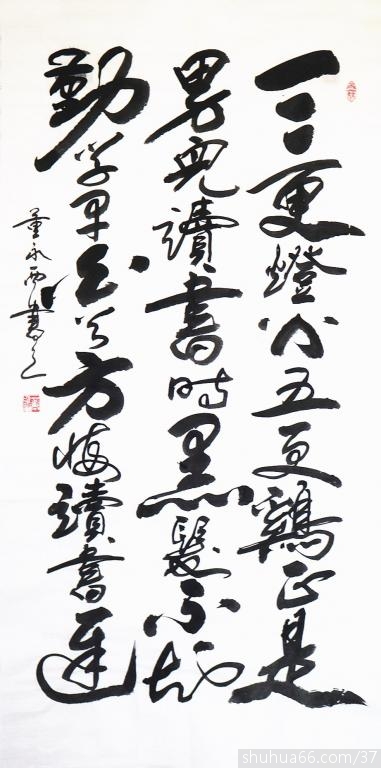 三更燈火五更鷄正是
男兒讀書時黑髮不知
勤學早白首方悔讀書遲
董永西書之
shuhua66.com/37